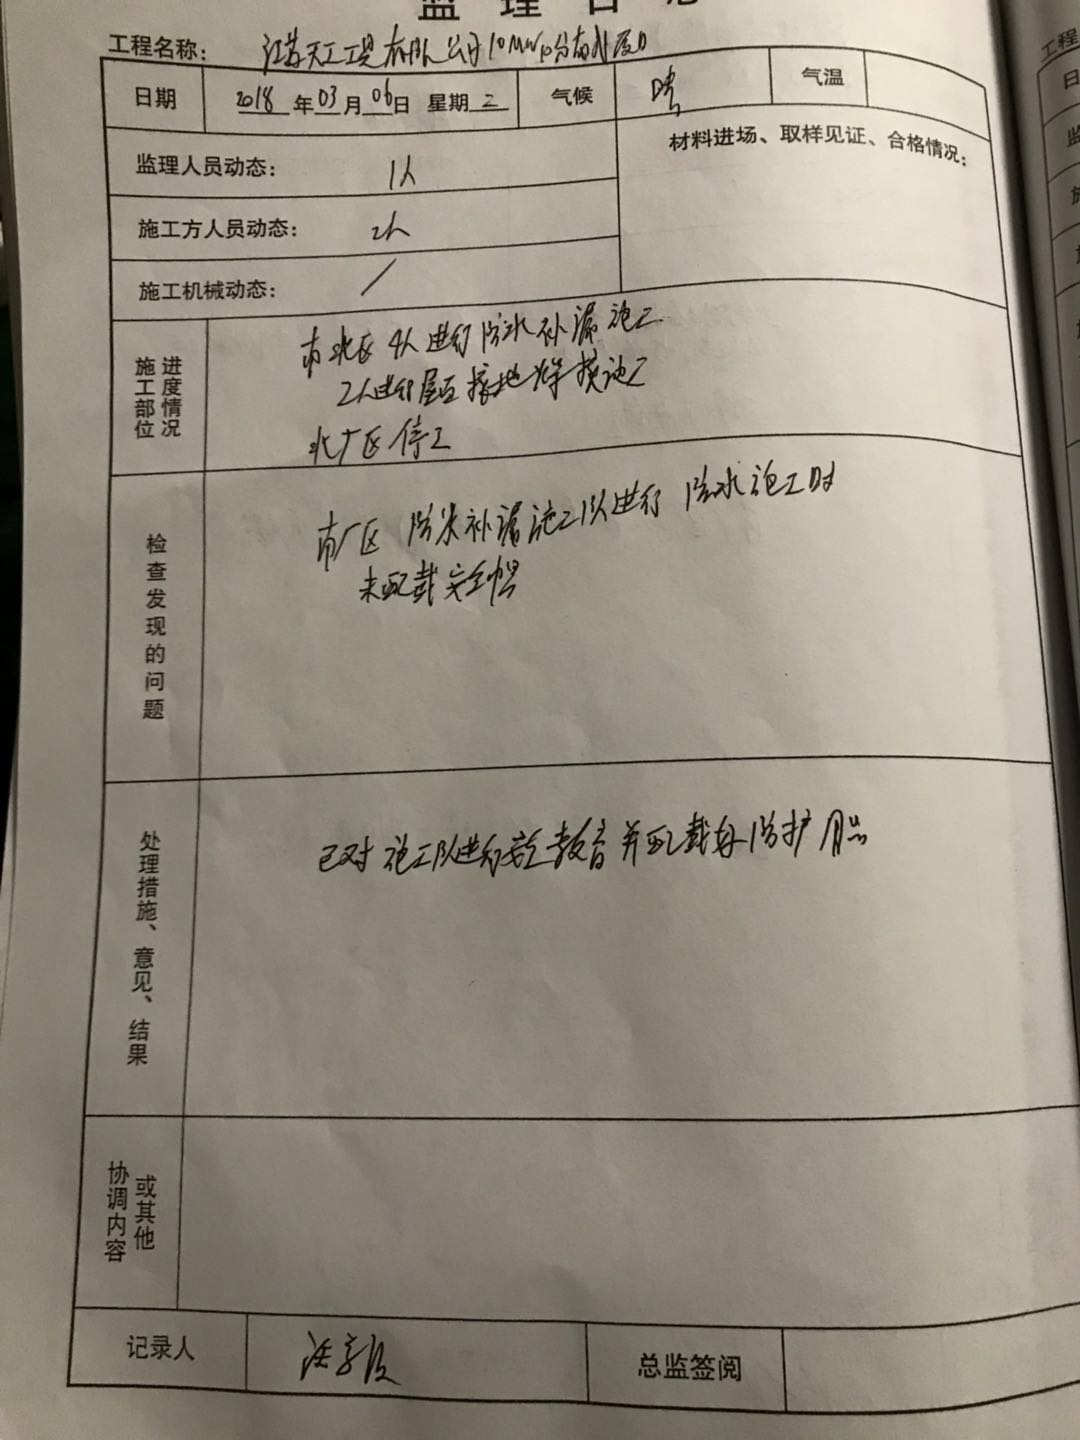 监理日志
工程名称: 江苏天工工具有限公司10MWp分布式项目
日期 2018年03月06日 星期2 气候 晴 气温
材料进场、取样见证、合格情况:
监理人员动态: 1人
施工方人员动态: 2人
施工机械动态: /
施工部位 进度情况
4人进行防水补漏施工
2人进行屋面接地焊接施工
北厂区停工
检查发现的问题
南厂区 防水补漏施工队进行防水施工时
未配戴安全帽
处理措施、意见、结果
已对施工队进行安全教育并配戴好防护用品
协调内容 或其他
记录人
总监签阅
工程